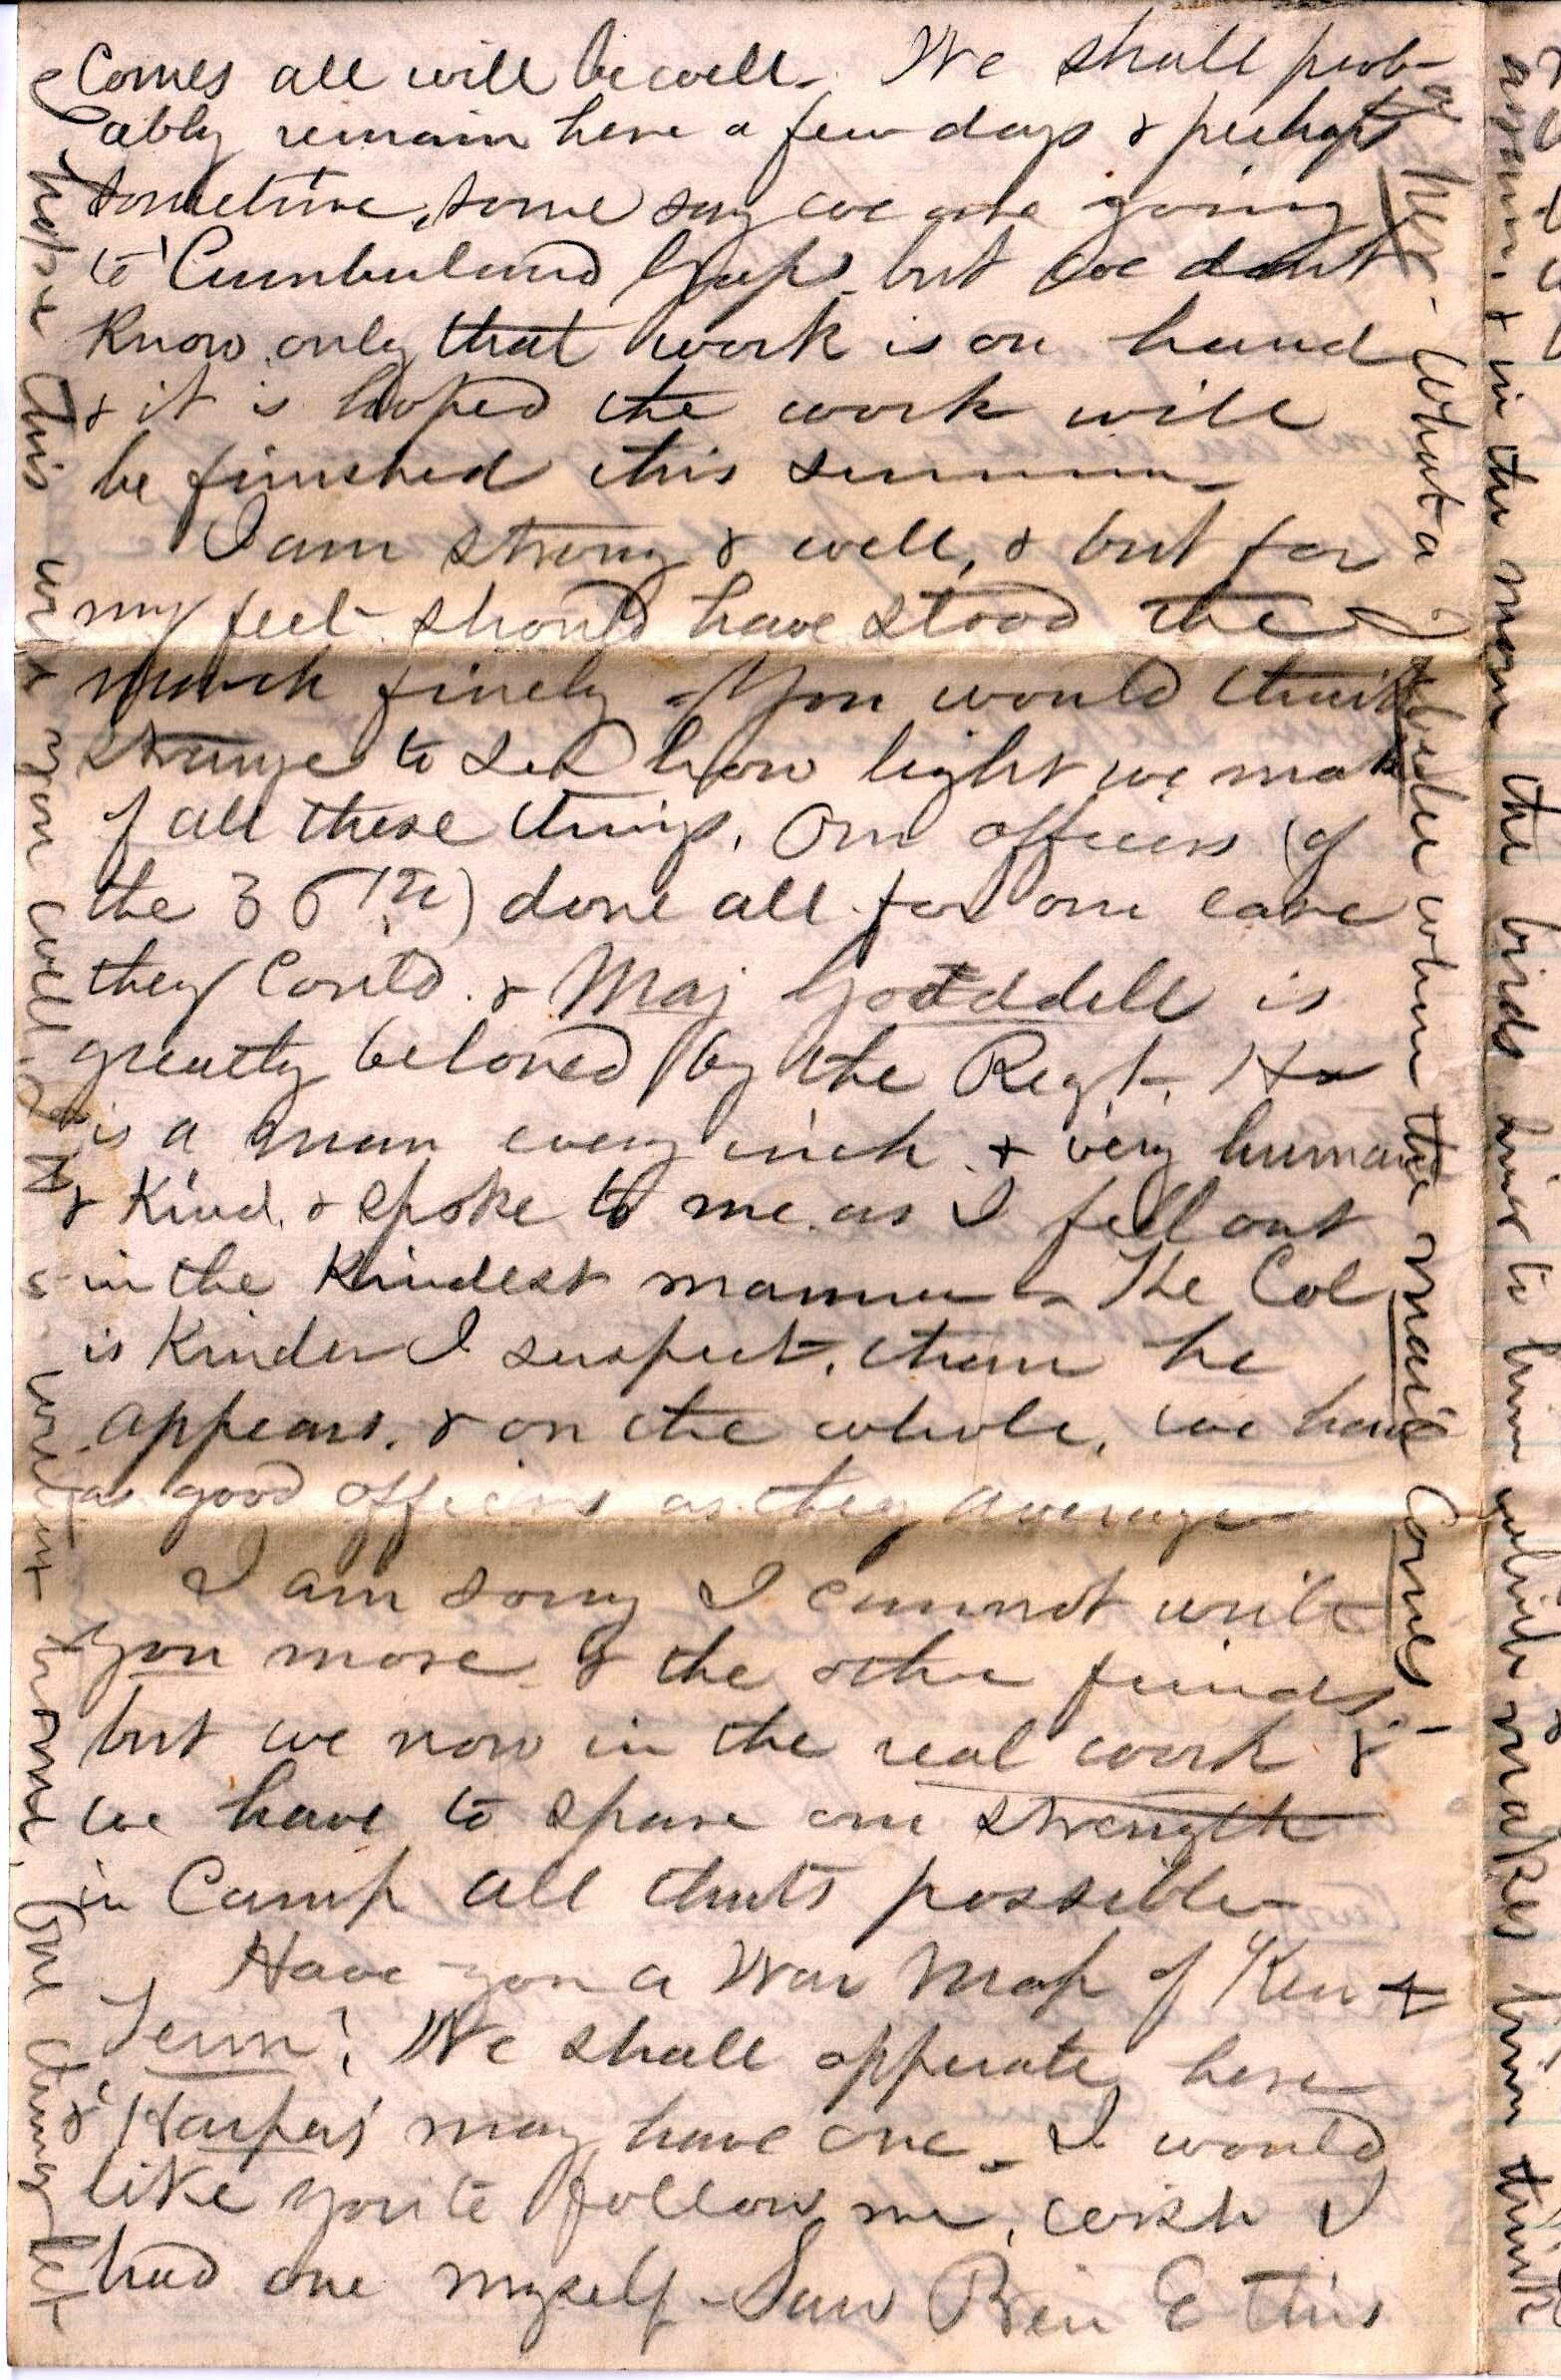 Comes all will be well. We shall prob-
ably remain here a few days & perhaps
sometime, some say we are going
to Cumberland Gap. but we dont
Know. only that work is on hand
& it is hoped the work will
be finished this summer
I am strong & well, & but for
my feet should have stood the
march finely. You would think
strange to see how light we make
of all these things. Our officers (of
the 36th) done all for our ease
they Could. & Maj Gooddell is
greatly beloved by the Regt. He
is a man every inch & very humane
& Kind. & spoke to me as I fell out
in the Kindest manner. The Col
is Kinder I suspect. than he
appears. & on the whole, we have
as good officers as they average
I am sorry I cannot write
you more & the other friends.
but we now in the real work &
we have to spare our strength
in Camp all thats possible
Have you a War Map of Ken &
Tenn? We shall opperate here
& Harpers may have one. I would
like you to follow me. wish I
had one myself. Saw Ben E this
her. What a I when the mail Comes.
hope this will you well.
& in the morn the birds him which makes him think